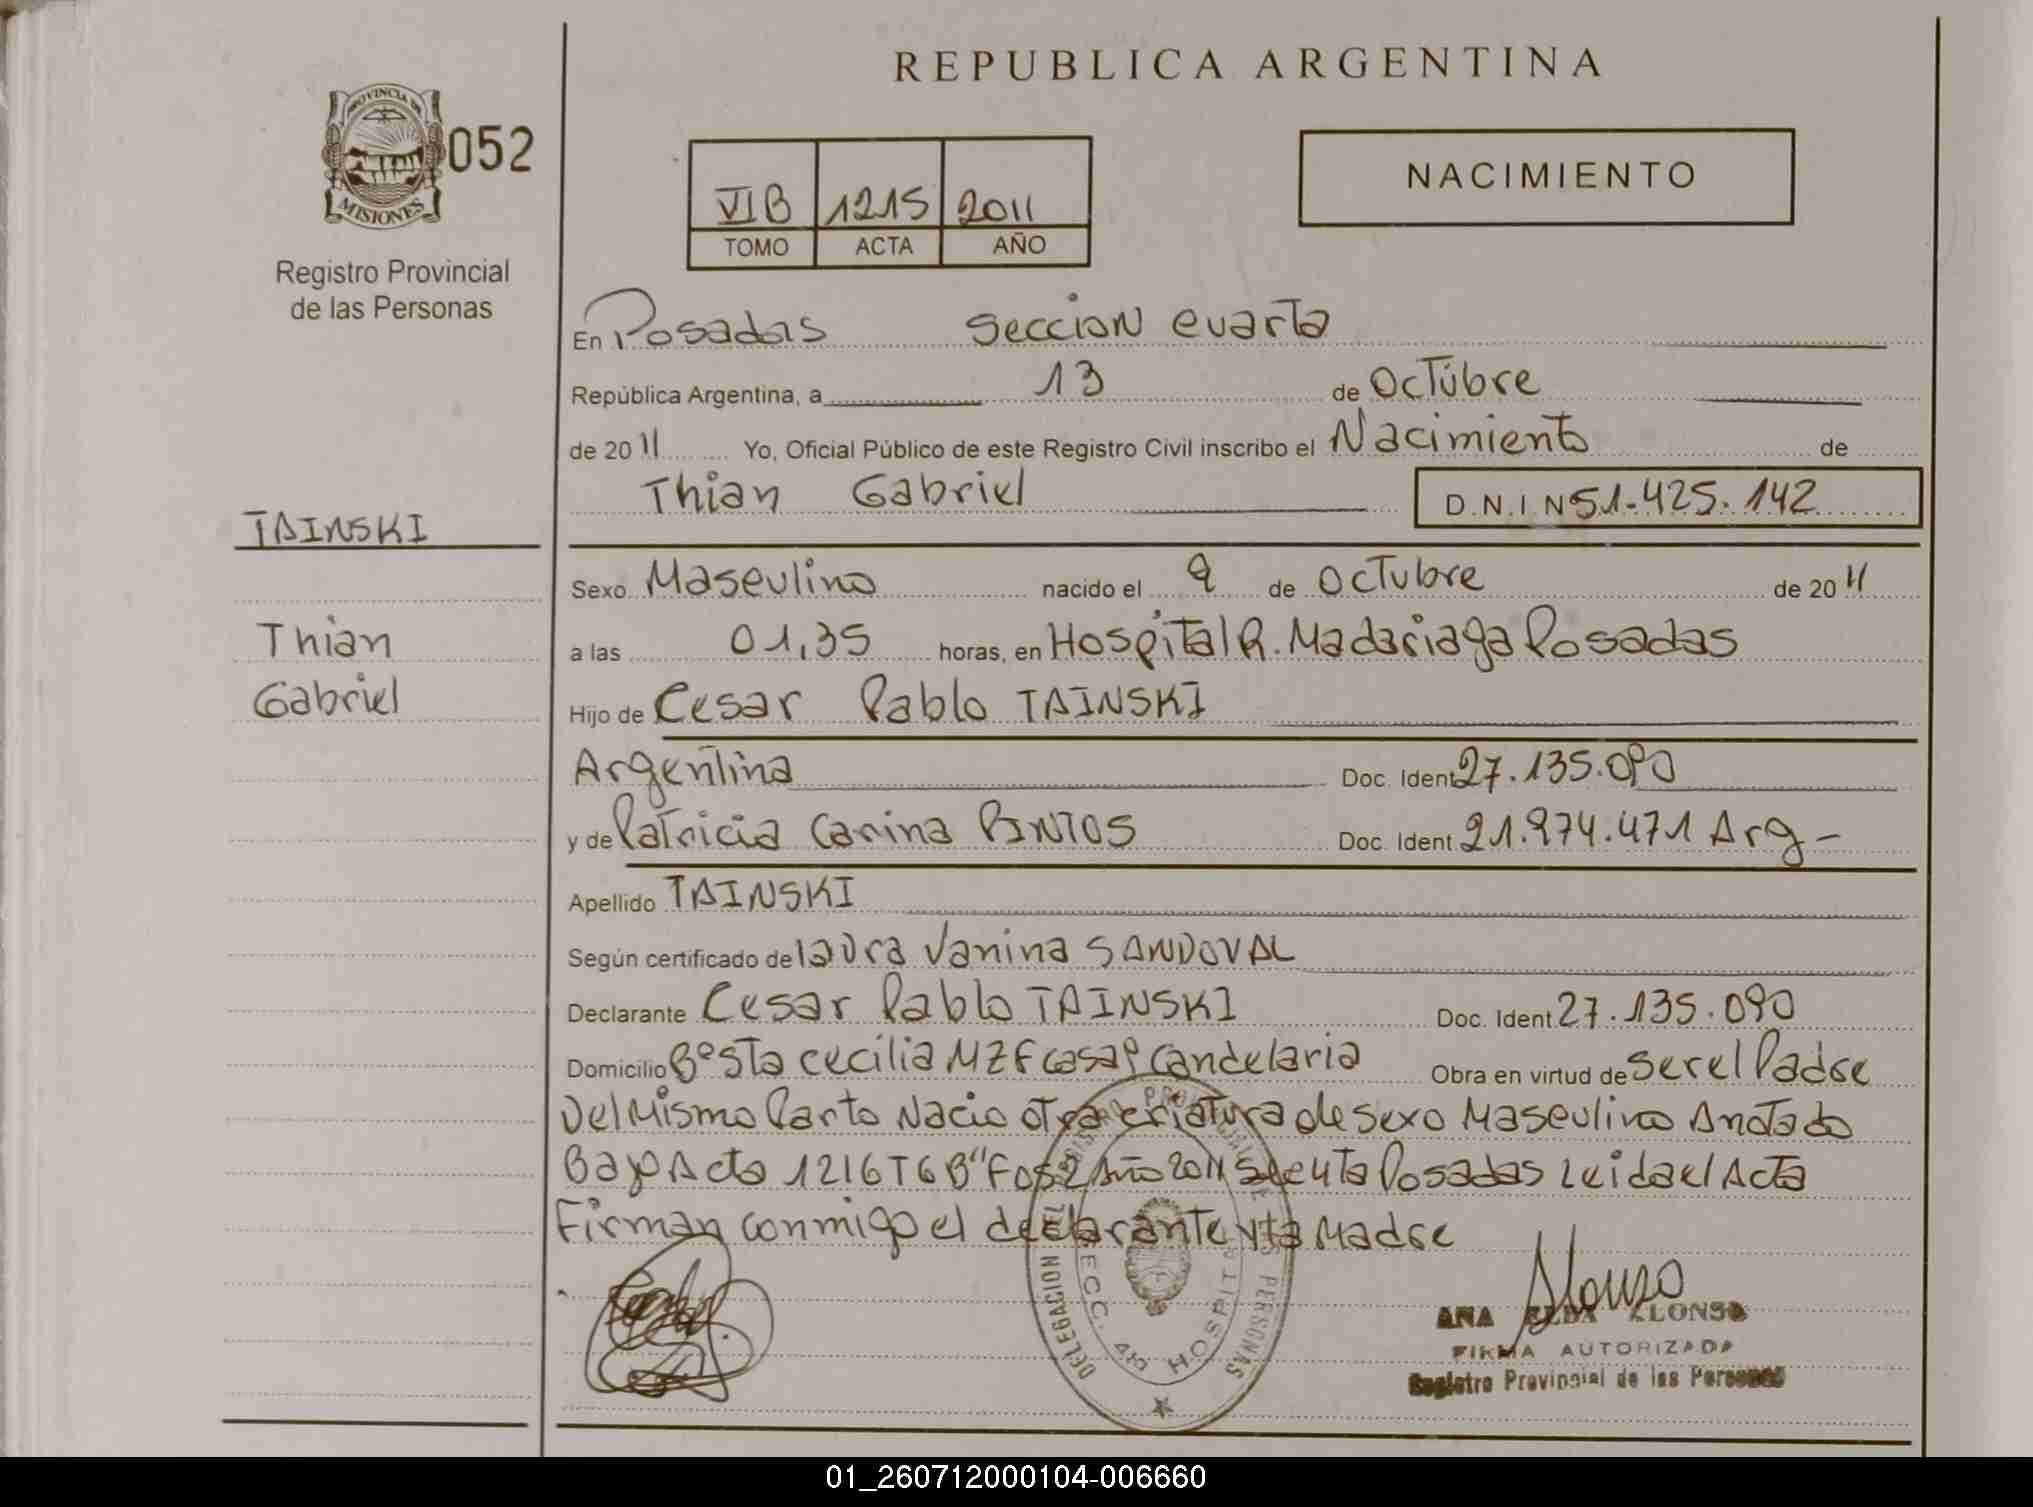 REPUBLICA ARGENTINA
PROVINCIA DE
MISIONES
052
Registro Provincial
de las Personas
VIB 1215 2011
TOMO ACTA AÑO
NACIMIENTO
En Posadas Seccion Cuarta
República Argentina, a 13 de Octubre
de 2011 Yo, Oficial Público de este Registro Civil inscribo el Nacimiento de
Thian Gabriel D.N.I N 51.425.142
TAINSKI
Thian
Gabriel
Sexo Masculino nacido el 9 de Octubre de 2011
a las 01,35 horas, en Hospital R. Madariaga Posadas
Hijo de Cesar Pablo TAINSKI
Argentina Doc. Ident 27.135.090
y de Patricia Carina PINTOS Doc. Ident. 21.974.471 Arg -
Apellido TAINSKI
Según certificado de Laura Vanina SANDOVAL
Declarante Cesar Pablo TAINSKI Doc. Ident. 27.135.090
Domicilio Bº Sta Cecilia MZ F casa 9 Candelaria Obra en virtud de ser el Padre
Del Mismo Parto Nacio otra criatura de sexo Masculino Anotado
Bajo Acta 1216 T6B" F052 Año 2011 Posadas Leida el Acta
Firman conmigo el declarante y la Madre
DELEGACION DEL PERSONAS
SECC. 4ta HOSPITAL
Alonso
ANA ELBA ALONSO
FIRMA AUTORIZADA
Registro Provincial de las Personas
01_260712000104-006660